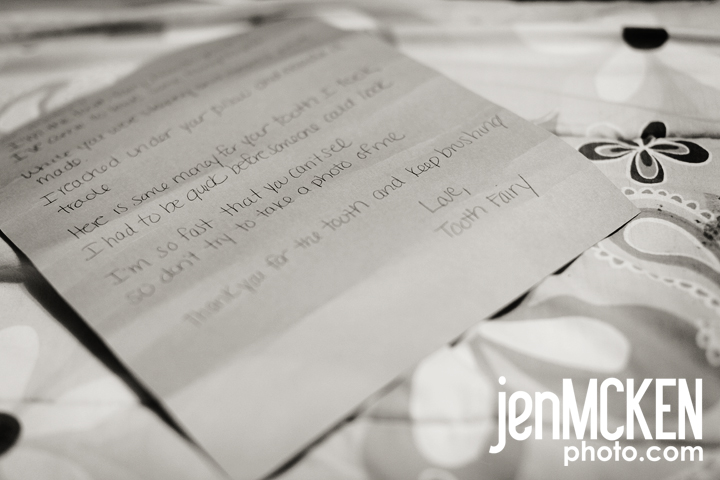 I'm the tooth fairy
I've come to your
while you were sleeping
made
I reached under your pillow and
trade
Here is some money for your tooth I took
I had to be quick before someone could look
I'm so fast that you can't see
so don't try to take a photo of me
Thank you for the tooth and keep brushing!
Love,
Tooth Fairy
jenMCKEN
photo.com